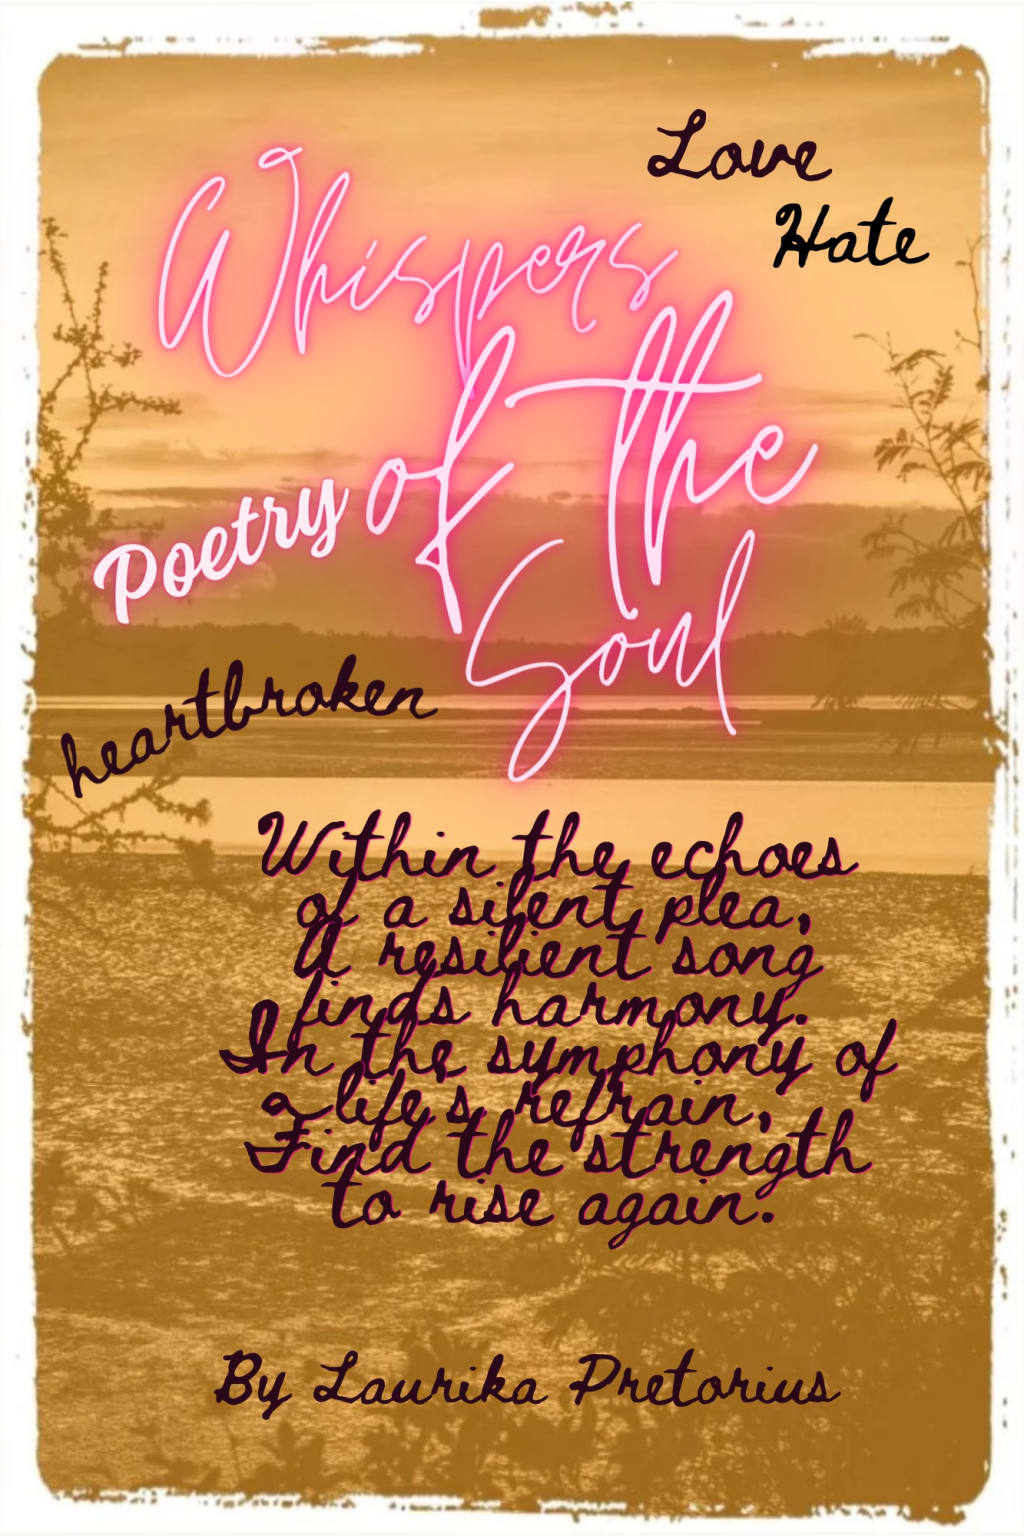 Love
Hate
Whispers
of the
Poetry
Soul
heartbroken
Within the echoes
of a silent plea,
A resilient song
finds harmony.
In the symphony of
a life's refrain,
Find the strength
to rise again.
By Laurika Pretorius